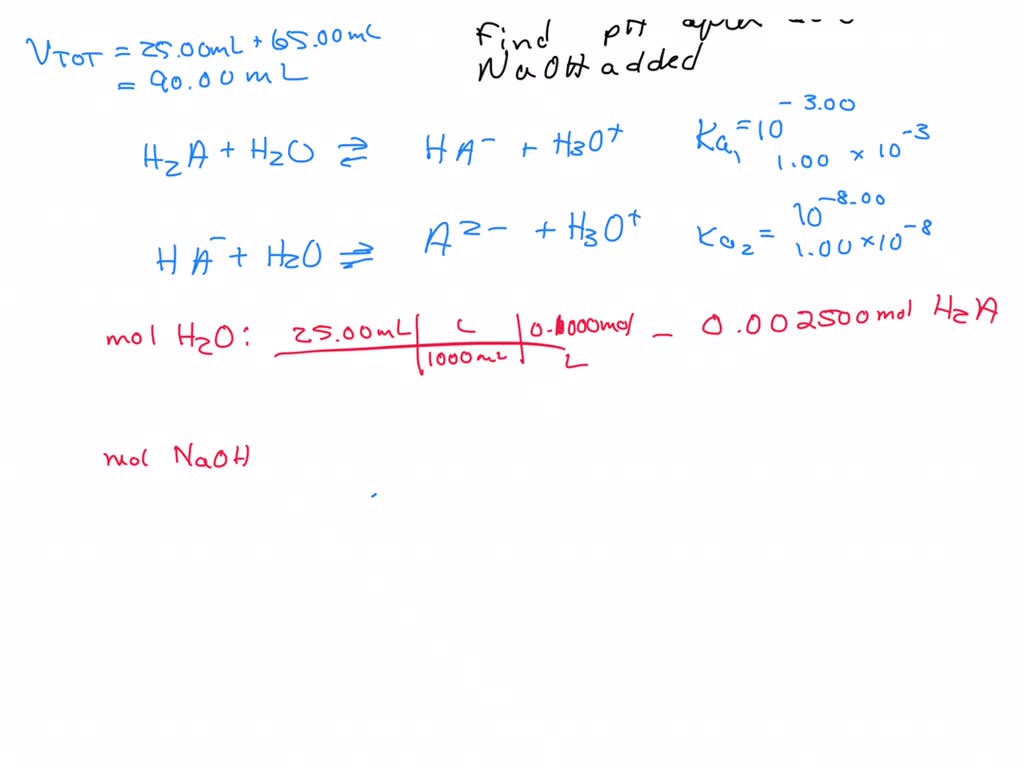 V_TOT = 25.00mL + 65.00mL
= 90.00 mL
Find pH after
NaOH added
H₂A + H₂O ⇌ HA⁻ + H₃O⁺ Ka₁ = 10^-3.00
1.00 × 10^-3
HA⁻ + H₂O ⇌ A²⁻ + H₃O⁺ Ka₂ = 10^-8.00
1.00 × 10^-8
mol H₂O: 25.00mL | L | 0.1000mol — 0.002500 mol H₂A
| 1000 mL | L
mol NaOH